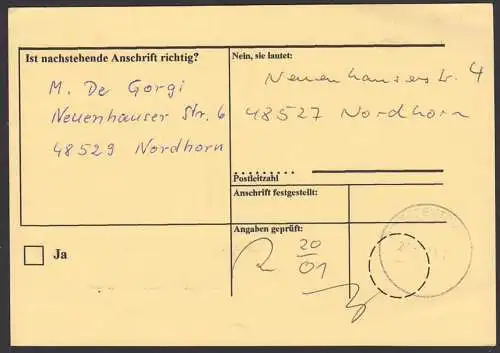 Ist nachstehende Anschrift richtig?
M. De Gorgi
Neuenhauser Str. 6
48529 Nordhorn
Ja
Nein, sie lautet:
Neuenhauserstr. 4
48527 Nordhorn
Postleitzahl
Anschrift festgestellt:
Angaben geprüft:
20
01